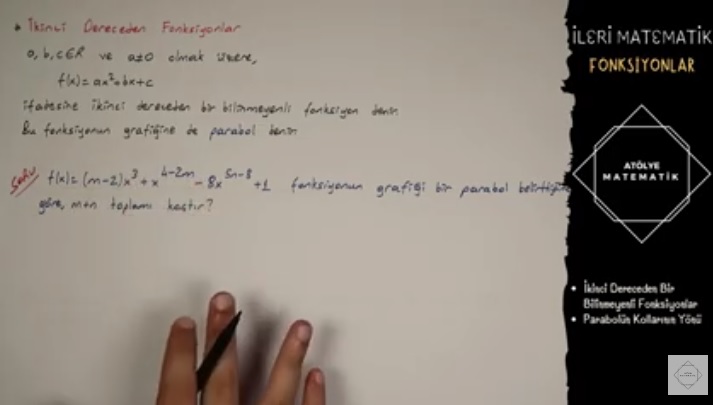 İkinci Dereceden Fonksiyonlar
a, b, c ∈ R ve a≠0 olmak üzere,
f(x) = ax²+bx+c
ifadesine ikinci dereceden bir bilinmeyenli fonksiyon denir
Bu fonksiyonun grafiğine de parabol denir
Soru f(x) = (m-2)x³ + x⁴⁻²ᵐ - 8x⁵ⁿ⁻⁸ + 1 fonksiyonun grafiği bir parabol belirttiğine
göre, m+n toplamı kaçtır?
İLERİ MATEMATİK
FONKSİYONLAR
ATÖLYE
MATEMATİK
• İkinci Dereceden Bir
Bilinmeyenli Fonksiyonlar
• Parabolün Kollarının Yönü